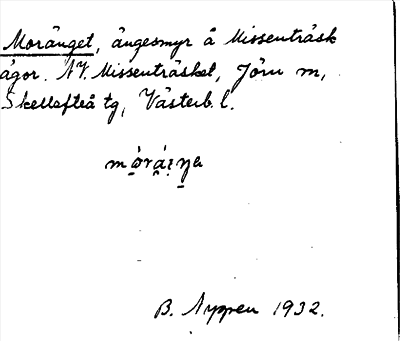 Moränget, ängesmyr å Missenträsk
ägor. NV. Missenträsket, Jörn m,
Skellefteå tg, Västerb. l.
B. Nyppen 1932.